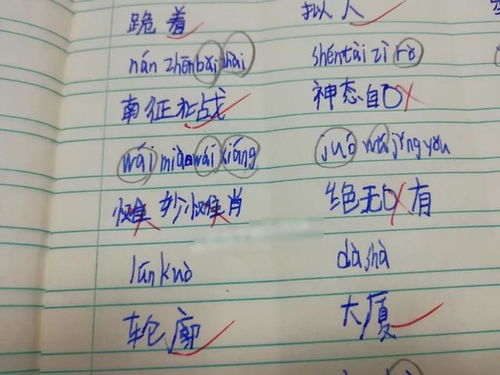 跪着 拟人
nán zhēn běi zhài shéntài zì rò
南征北战 神态自
wái miào wái xiāng juó wú jǐng yǒu
妙 肖 绝无 有
lún kuò dàshà
轮廓 大厦